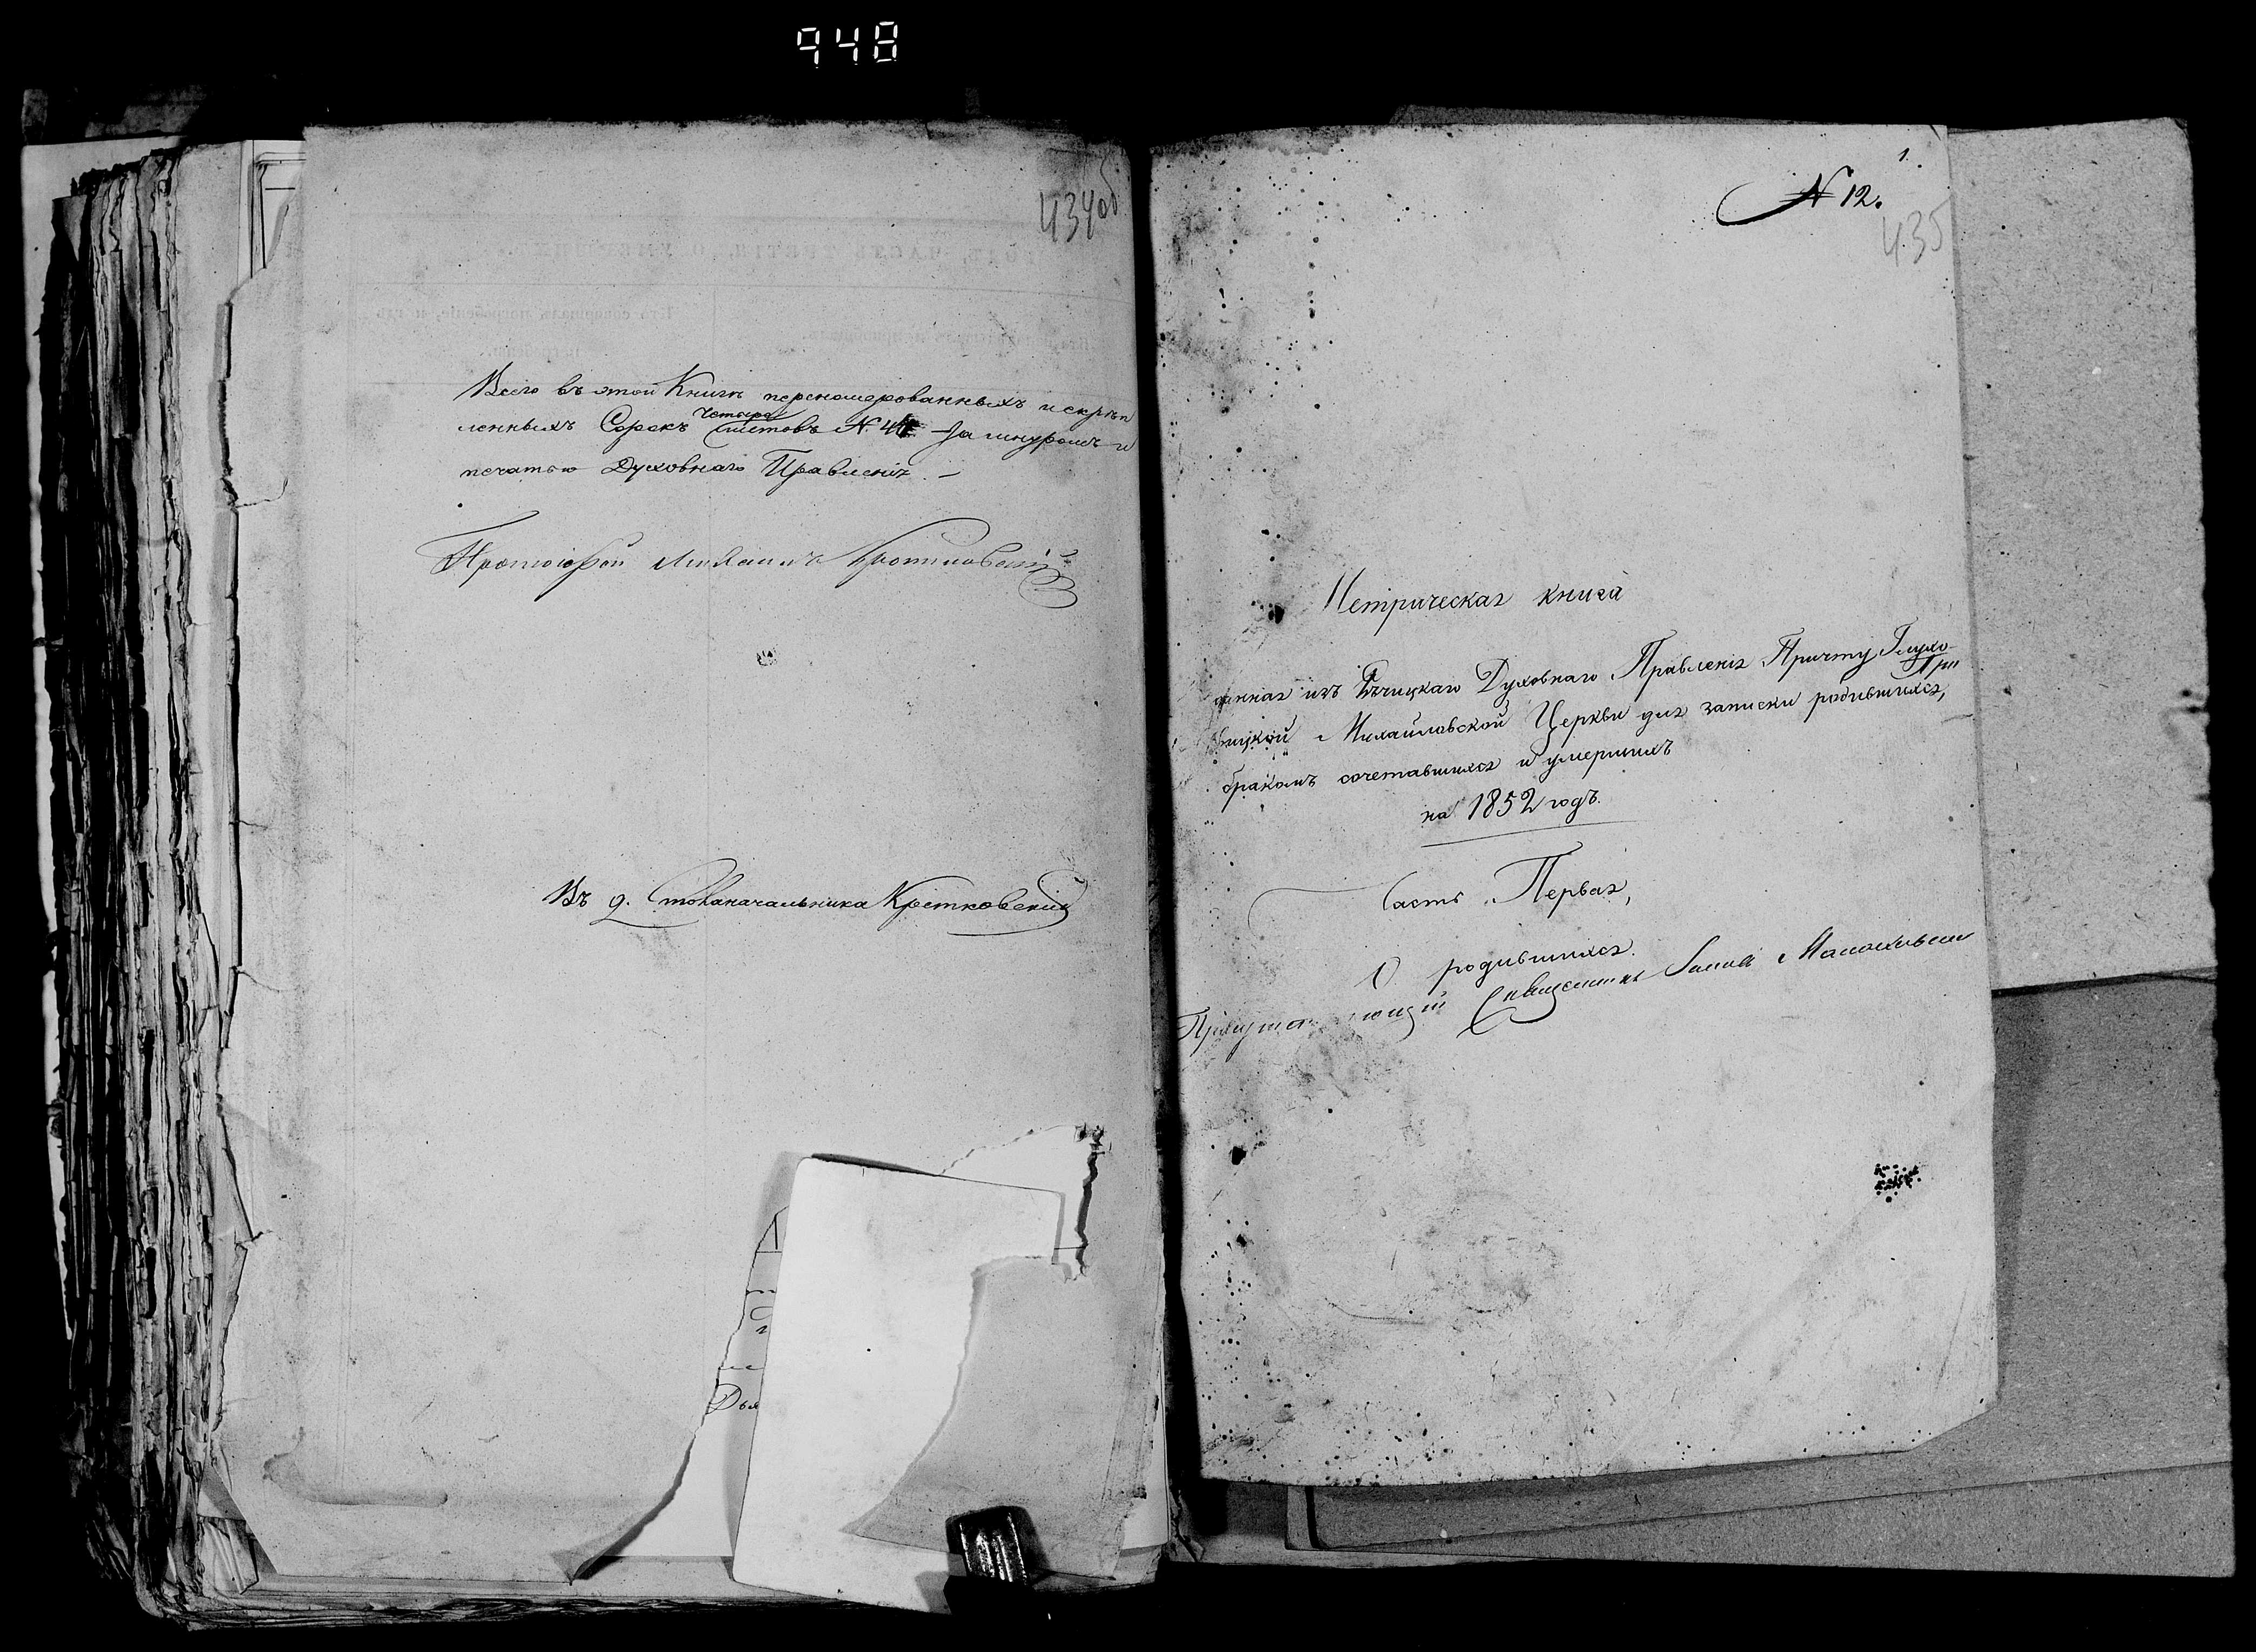 948
434об
Всего въ этой Книгѣ переномерованныхъ и скрѣп
ленныхъ Сорокъ четыре листовъ N. 44 за шнуромъ и
печатью Духовнаго Правленія. –
Протоіерей Михаилъ
Въ д. Столоначальника Кретковскій
1.
N 12.
435
Метрическая книга
данная изъ Рѣчицкаго Духовнаго Правленія Причту Глухо-
вицкой Михайловской Церкви для записки родившихся,
бракомъ сочетавшихся и умершихъ
на 1852 годъ.
Часть Первая,
О родившихся.
Священникъ